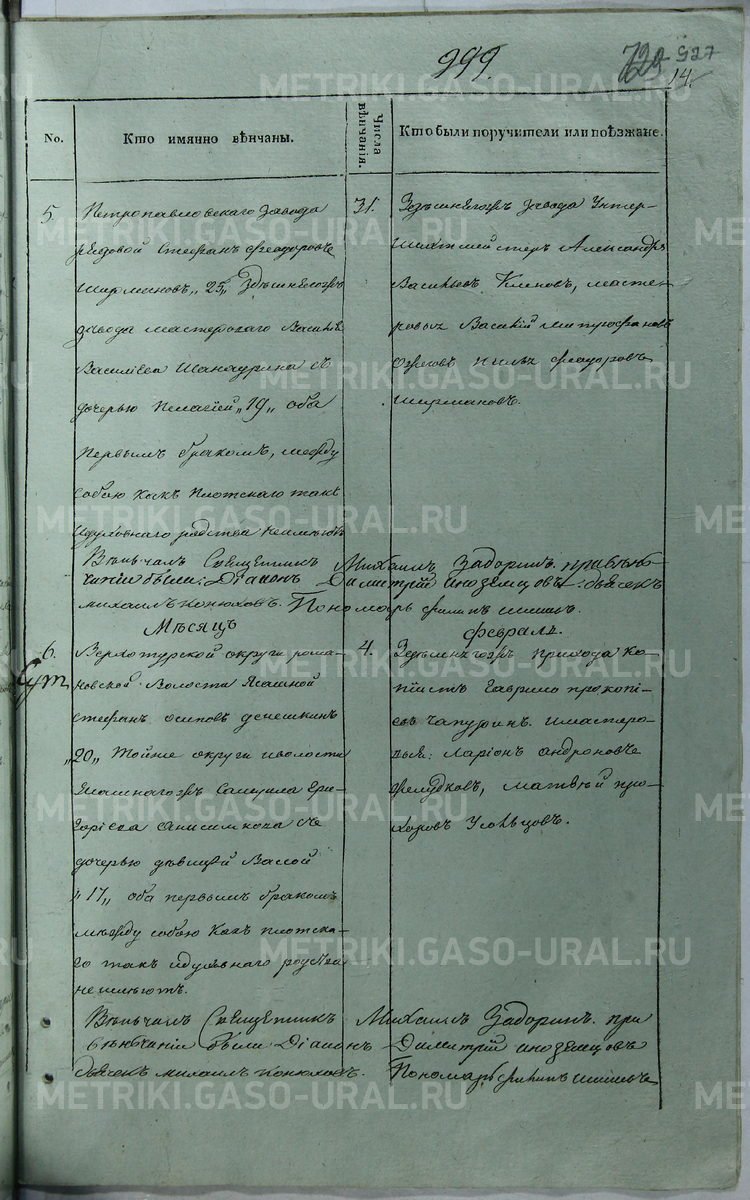 999.
729 927
14.
No.
Кто имянно вѣнчаны.
Числа вѣнчанія.
Кто были поручители или поѣзжане.
5.
Петропавловскаго Завода
рядовой Стефанъ Ѳеодоровъ
Ширмановъ, „25„ Здѣшнягожъ
завода мастероваго Василья
Васильева Шанаурина съ
дочерью Пелагіей „19„ оба
первымъ бракомъ, между
собою какъ плотскаго такъ
и духовнаго родства неимѣютъ
31.
Здѣшнягожъ завода Унтер-
Шихтмейстеръ Александръ
Васильевъ Клеповъ, масте-
ровыя Василій Митрофановъ
Ѳеодоровъ
Ширмановъ.
Вѣнчалъ Священникъ Михаилъ Задоринъ. при вѣн-
чаніи были: Діаконъ Димитрій Иноземцовъ: дьячекъ
михаилъ Конюховъ. Пономарь филипъ шишевъ.
Мѣсяцъ февраль.
6.
Верхотурской округи рома-
новской Волости Ясашной
стефанъ осиповъ денешкинъ
„20„ Тойже округи иволости
Ясашнагожъ Самуила Гри-
горіева Анисимкова съ
дочерью дѣвицей Васой
„17„ оба первымъ бракомъ
между собою какъ плотска-
го такъ идуховнаго родства
не имѣютъ.
4.
Здѣшнягожъ прихода Ко-
піистъ Гаврило прокопі-
евъ Чапуринъ. Имастеро-
выя: Ларіонъ андроновъ
Желудковъ, матвѣй про-
хоровъ Усольцовъ.
Вѣнчалъ Священникъ Михаилъ Задоринъ. при
вѣнчаніи были Діаконъ Димитрій иноземцовъ
дьячекъ михаилъ Конюховъ. Пономарь филипъ шишевъ
METRIKI.GASO-URAL.RU